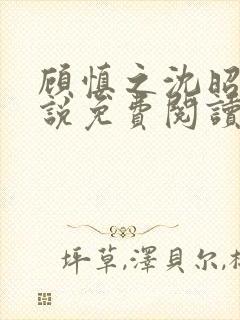 顾慎之沈昭
說免費閱讀
坪草,澤貝尔,